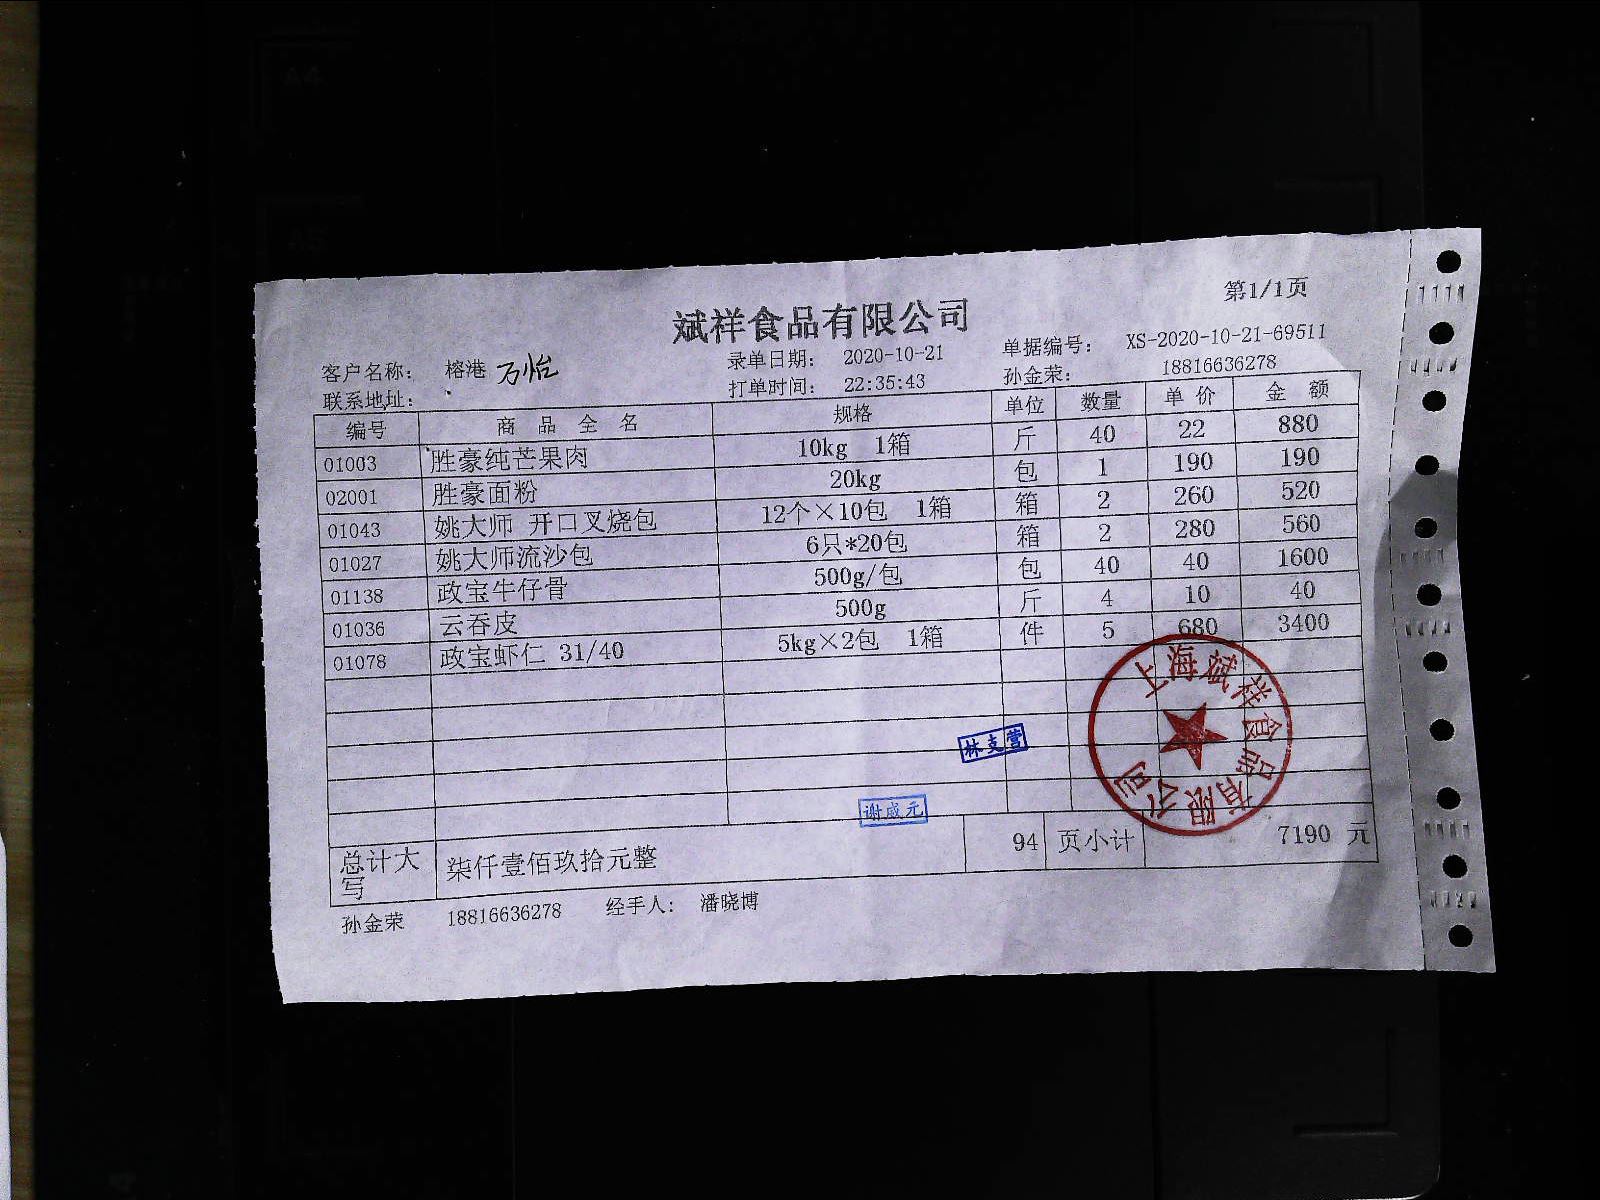 第1/1页
斌祥食品有限公司
客户名称： 榕港 万怡 录单日期： 2020-10-21 单据编号： XS-2020-10-21-69511
联系地址： 打单时间： 22:35:43 孙金荣： 18816636278
编号 商 品 全 名 规格 单位 数量 单 价 金 额
01003 胜豪纯芒果肉 10kg 1箱 斤 40 22 880
02001 胜豪面粉 20kg 包 1 190 190
01043 姚大师 开口叉烧包 12个×10包 1箱 箱 2 260 520
01027 姚大师流沙包 6只*20包 箱 2 280 560
01138 政宝牛仔骨 500g/包 包 40 40 1600
01036 云吞皮 500g 斤 4 10 40
01078 政宝虾仁 31/40 5kg×2包 1箱 件 5 680 3400
上海斌祥食品有限公司
林支营
谢咸元
总计大写 柒仟壹佰玖拾元整 94 页小计 7190 元
孙金荣 18816636278 经手人： 潘晓博